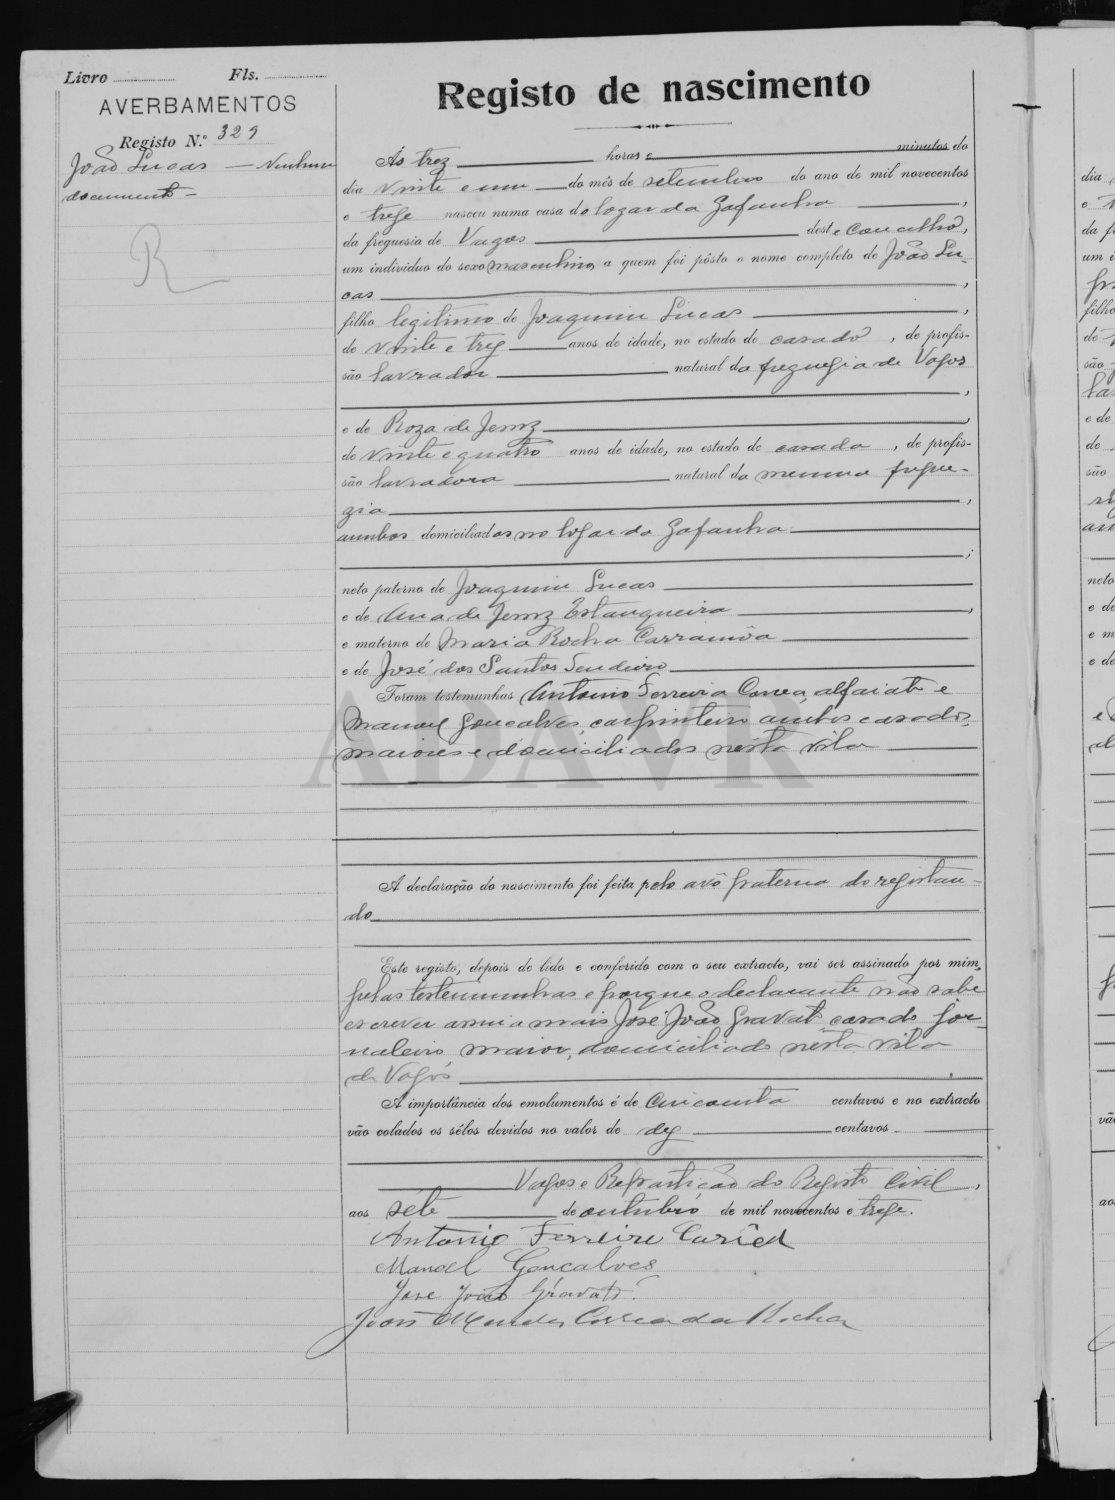 Livro Fls.
AVERBAMENTOS
Registo N.º 329
João Lucas — Nenhum
documento —
R
Registo de nascimento
Ás trez horas e minutos do
dia vinte e um do mês de setembro do ano de mil novecentos
e treze nasceu numa casa do logar da Gafanha,
da freguesia de Vagos deste concelho,
um indivíduo do sexo masculino, a quem foi pôsto o nome completo de João Lu-
cas,
filho legitimo de Joaquim Lucas,
de vinte e trez anos de idade, no estado de casado, de profis-
são lavrador natural da freguezia de Vagos
,
e de Roza de Jesuz,
de vinte e quatro anos de idade, no estado de casada, de profis-
são lavradora natural da mesma fregue-
zia,
ambos domiciliados no logar da Gafanha
;
neto paterno de Joaquim Lucas
e de Ana de Jesuz Estanqueira,
e materno de Maria Rocha Carramôa
e de José dos Santos Sendeiro
Foram testemunhas Antonio Ferreira Correa, alfaiate e
Manoel Gonçalves, carpinteiro ambos casados,
maiores e domiciliados nesta vila
ADAVR
A declaração do nascimento foi feita pelo avô paterno do registan-
do
Este registo, depois de lido e conferido com o seu extracto, vai ser assinado por mim,
pelas testemunhas e porque o declarante não sabe
escrever assina mais José João Gravato casado jor-
naleiro maior, domiciliado nesta vila
de Vagos
A importância dos emolumentos é de cincoenta centavos e no extracto
vão colados os sêlos devidos no valor de dez centavos
Vagos e Repartição do Registo Civil,
aos séte de outubro de mil novecentos e treze.
Antonio Ferreira
Manoel Goncalves
Jose João Gravato
João Mendes Correa da Rocha